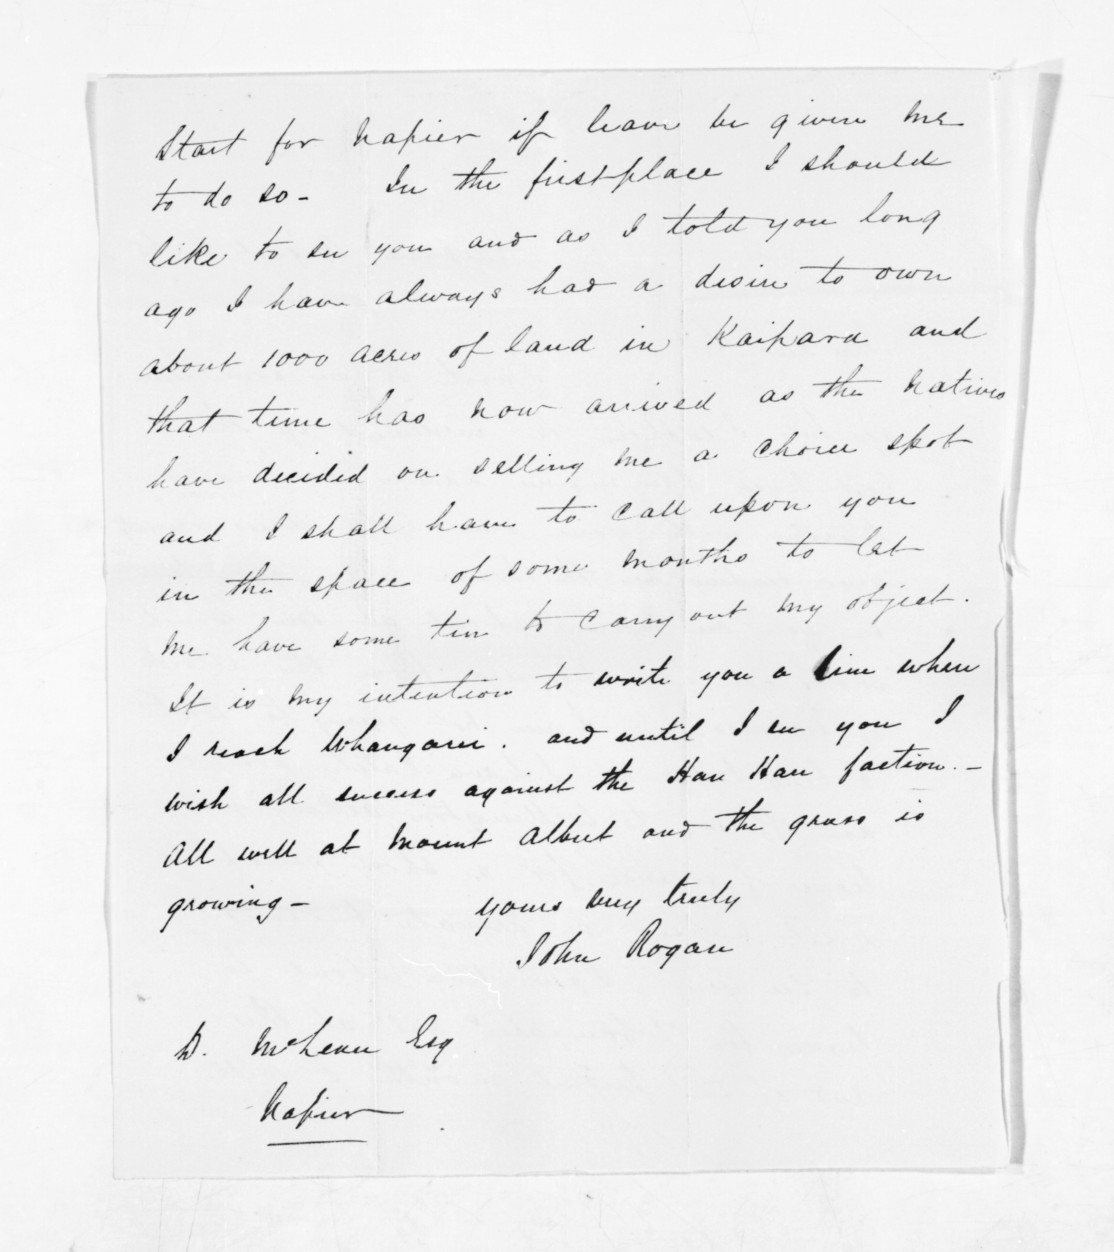 Start for Napier if leave be given me
to do so - In the first place I should
like to see you and as I told you long
ago I have always had a desire to own
about 1000 acres of land in Kaipara and
that time has now arrived as the Natives
have decided on selling me a choice spot
and I shall have to call upon you
in the space of some months to let
me have some tin to carry out my object.
It is my intention to write you a line when
I reach Whangarei. and until I see you I
wish all success against the Hau Hau faction. -
All well at Mount Albert and the grass is
growing -
Yours very truly
John Rogan
D. McLean Esq
Napier